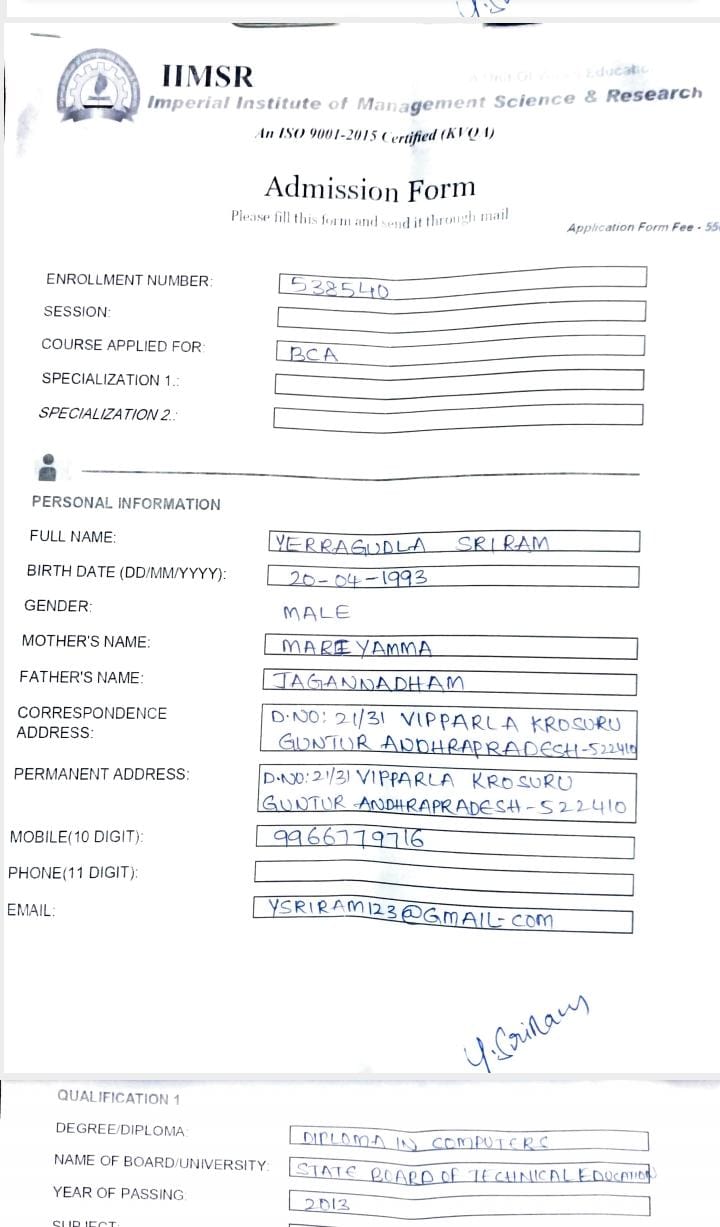 IIMSR
Imperial Institute of Management Science & Research
An ISO 9001-2015 Certified (KVQA)
Admission Form
Please fill this form and send it through mail
Application Form Fee - 55
ENROLLMENT NUMBER: 538540
SESSION:
COURSE APPLIED FOR: BCA
SPECIALIZATION 1.:
SPECIALIZATION 2.:
PERSONAL INFORMATION
FULL NAME: YERRAGUDLA SRIRAM
BIRTH DATE (DD/MM/YYYY): 20-04-1993
GENDER: MALE
MOTHER'S NAME: MARIYAMMA
FATHER'S NAME: JAGANNADHAM
CORRESPONDENCE ADDRESS: D.NO: 21/31 VIPPARLA KROSURU
GUNTUR ANDHRAPRADESH-522410
PERMANENT ADDRESS: D.NO: 21/31 VIPPARLA KROSURU
GUNTUR ANDHRAPRADESH-522410
MOBILE(10 DIGIT): 9966779716
PHONE(11 DIGIT):
EMAIL: YSRIRAM123@GMAIL.COM
Y.SriRam
QUALIFICATION 1
DEGREE/DIPLOMA: DIPLOMA IN COMPUTERS
NAME OF BOARD/UNIVERSITY: STATE BOARD OF TECHNICAL EDUCATION
YEAR OF PASSING: 2013
SUBJECT: